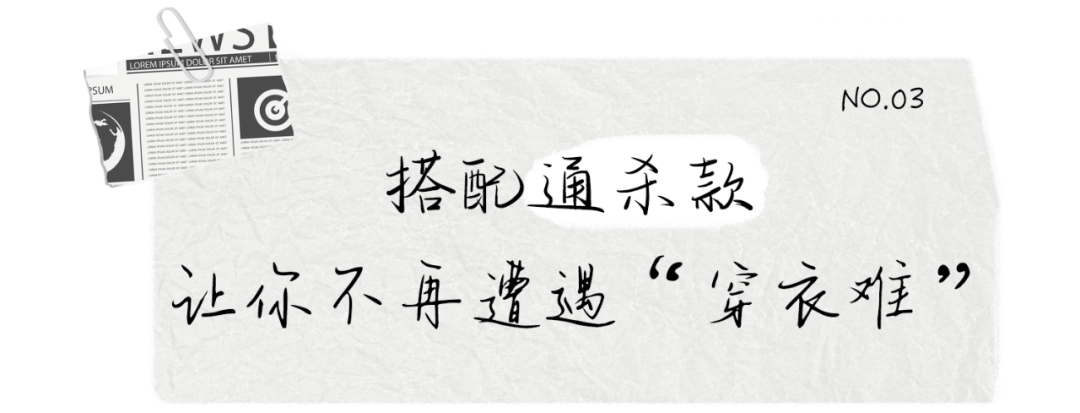 NEWS
LOREM IPSUM DOLOR SIT AMET
PSUM
NO.03
搭配通杀款
让你不再遭遇“穿衣难”